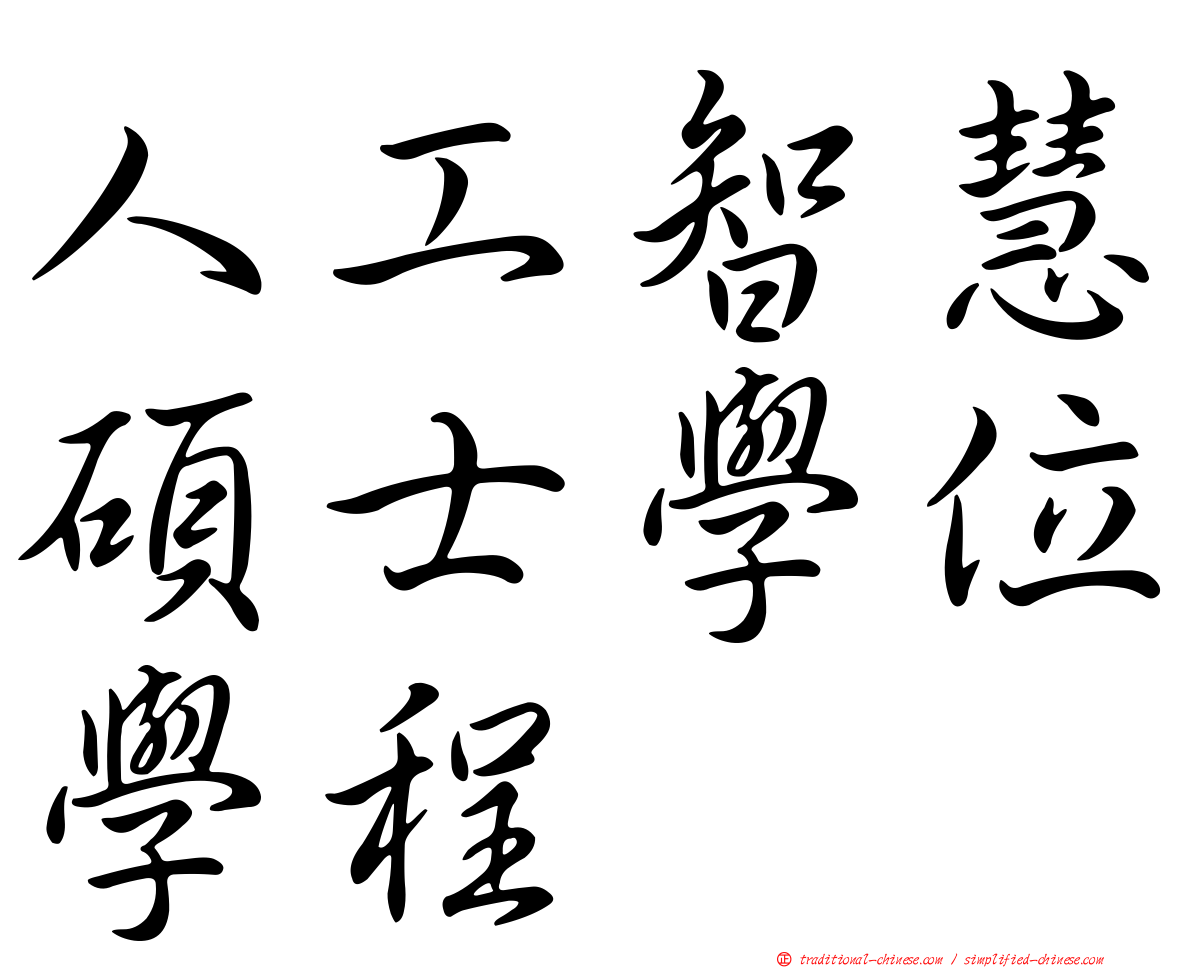 人工智慧
碩士學位
學程
㊣ traditional-chinese.com / simplified-chinese.com